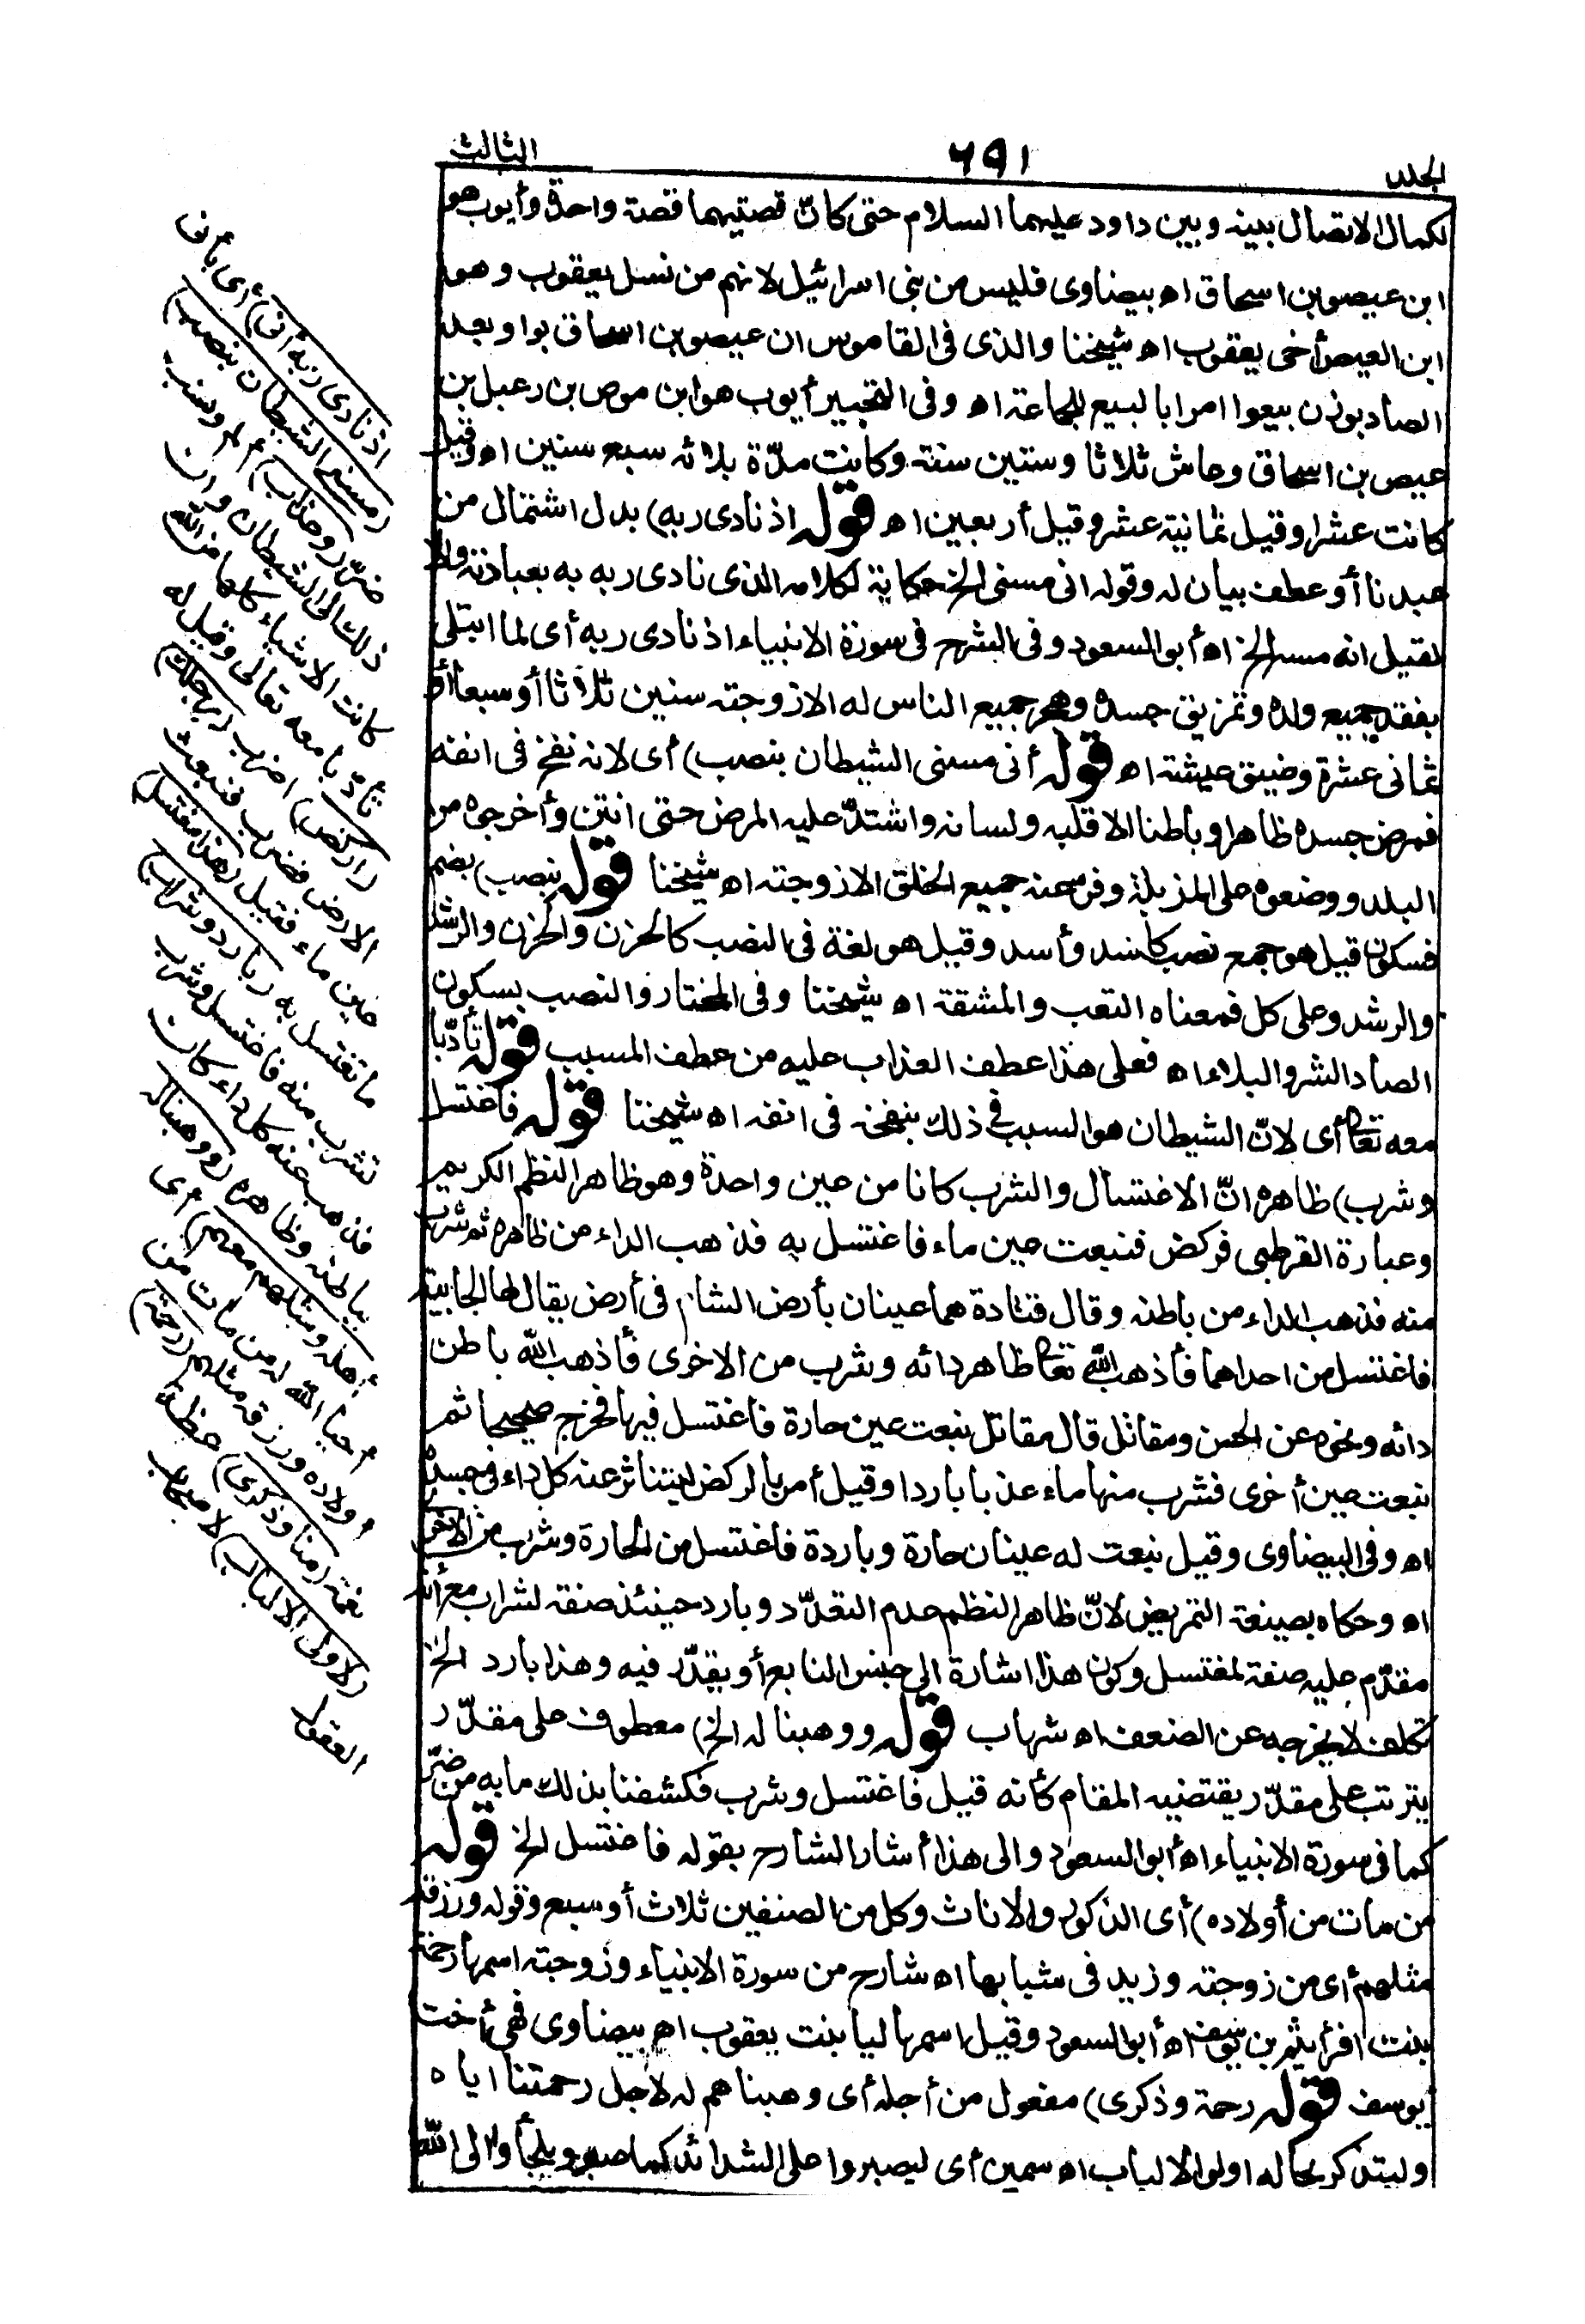 المجلد
٦٩١
الثالث
لكمال الاتصال بينه وبين داود عليهما السلام حتى كأنّ قصتيهما قصة واحدة وأيوب هو
ابن عيصو بن اسحاق اه بيضاوى فليس من بنى اسرائيل لانهم من نسل يعقوب وهو
ابن العيص أخى يعقوب اه شيخنا والذى فى القاموس ان عيصو بن اسحاق بوا و بعد
الصاد بوزن بيعوا امرا بالبيع للجماعة اه وفى التحبير أيوب هو ابن موص بن رعبل بن
عيص بن اسحاق وعاش ثلاثا وستين سنة وكانت مدّة بلائه سبع سنين اه وقيل
كانت عشرا وقيل ثمانية عشر وقيل أربعين اه قوله اذ نادى ربه) بدل اشتمال من
عبدنا أو عطف بيان له وقوله انى مسنى الخ حكاية لكلامه الذى نادى ربه به بعبادته والا
لقيل انه مسه الخ اه أبو السعود وفى الشرح فى سورة الانبياء اذ نادى ربه أى لما ابتلى
بفقد جميع ولده وتمزيق جسده وهجر جميع الناس له الا زوجته سنين ثلاثا أو سبعا أو
ثمانى عشرة وضيق عيشته اه قوله أنى مسنى الشيطان بنصب) أى لانه نفخ فى انفه
فمرض جسده ظاهرا وباطنا الا قلبه ولسانه واشتدّ عليه المرض حتى انتن وأخرجوه من
البلد ووضعوه على المزبلة وفر عنه جميع الخلق الا زوجته اه شيخنا قوله بنصب) بضم
فسكون قيل هو جمع نصب كأسد وأسد وقيل هو لغة فى النصب كالحزن والحزن والرشد
والرشد وعلى كل فمعناه التعب والمشقة اه شيخنا وفى المختار والنصب بسكون
الصاد الشر والبلاء اه فعلى هذا عطف العذاب عليه من عطف المسبب قوله تأدّبا
معه تعالى أى لانّ الشيطان هو السبب فى ذلك بنفخه فى انفه اه شيخنا قوله فاغتسل
وشرب) ظاهره انّ الاغتسال والشرب كانا من عين واحدة وهو ظاهر النظم الكريم
وعبارة القرطبى فركض فنبعت عين ماء فاغتسل به فذهب الداء من ظاهره ثم شرب
منه فذهب الداء من باطنه وقال قتادة هما عينان بأرض الشام فى أرض يقال لها الجابية
فاغتسل من احداهما فأذهب الله تعالى ظاهر دائه وشرب من الاخرى فأذهب الله باطن
دائه ونحوه عن الحسن ومقاتل قال مقاتل نبعت عين حارة فاغتسل فيها فخرج صحيحا ثم
نبعت عين أخرى فشرب منها ماء عذبا باردا وقيل أمر بالركض ليتناثر عنه كل داء فى جسده
اه وفى البيضاوى وقيل نبعت له عينان حارة وباردة فاغتسل من الحارة وشرب من الاخرى
اه وحكاه بصيغة التمريض لانّ ظاهر النظم عدم التعدّد وبارد حينئذ صفة لشراب مع أنه
مقدّم عليه صفة لمغتسل وكون هذا اشارة الى جنس النابع أو يقدّر فيه وهذا بارد الخ
تكلف لا يخرجه عن الضعف اه شهاب قوله ووهبنا له الخ) معطوف على مقدّر
يترتب على مقدّر يقتضيه المقام كأنه قيل فاغتسل وشرب فكشفنا بذلك ما به من ضرّ
كما فى سورة الانبياء اه أبو السعود والى هذا أشار الشارح بقوله فاغتسل الخ قوله
من مات من أولاده) أى الذكور والاناث وكل من الصنفين ثلاث أو سبع وقوله ورزقه
مثلهم أى من زوجته وزيد فى شبابها اه شارح من سورة الانبياء وزوجته اسمها رحمة
بنت افرأيثم بن يوسف اه أبو السعود وقيل اسمها ليا بنت يعقوب اه بيضاوى فهى أخت
يوسف قوله رحمة وذكرى) مفعول من أجله أى وهبناهم له لاجل رحمتنا اياه
وليتذكر بحاله اولو الالباب اه سمين أى ليصبروا على الشدائد كما صبر ويلجأوا الى الله
اذ نادى ربه أنى) أى بأنى
(مسنى الشيطان بنصب)
ضرّ (وعذاب) ألم ونسب
ذلك الى الشيطان وان
كانت الاشياء كلها من الله
تأدّبا معه تعالى وقيل له
(اركض) اضرب (برجلك)
الارض فضرب فنبعت
عين ماء فقيل (هذا مغتسل)
ما تغتسل به (بارد وشراب)
تشرب منه فاغتسل وشرب
فذهب عنه كل داء كان
بباطنه وظاهره (ووهبنا له
أهله ومثلهم معهم) أى
أحيا الله له من مات من
أولاده ورزقه مثلهم (رحمة)
نعمة (منا وذكرى) عظة
(لاولى الالباب) لاصحاب
العقول